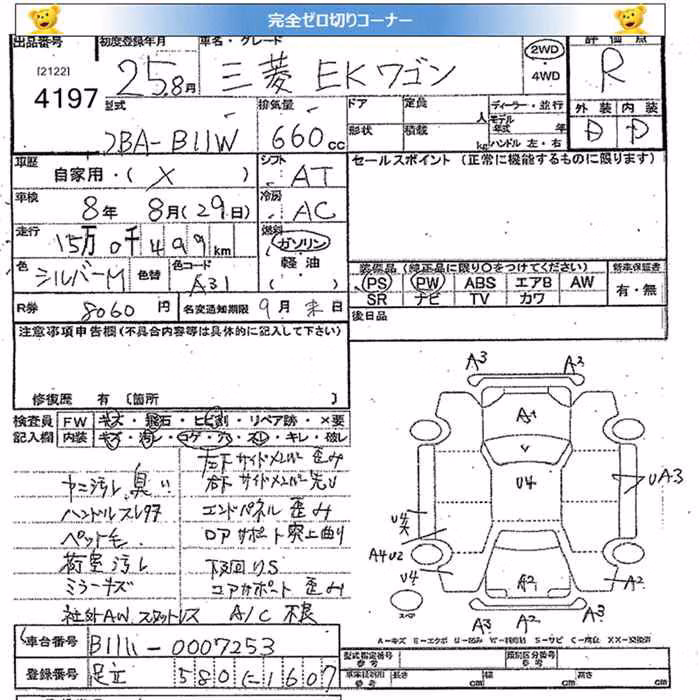 完全ゼロ切りコーナー
出品番号
[2122]
4197
初度登録年月
25.8月
車名・グレード
三菱 EKワゴン
2WD
4WD
評価点
R
外装 内装
D D
型式
DBA-B11W
排気量
660cc
ドア 定員 人
形状 積載 kg
ディーラー・並行
モデル年式 年
ハンドル 左・右
車歴
自家用・( X )
シフト
AT
セールスポイント (正常に機能するものに限ります)
車検
8年 8月(29日)
冷房
AC
走行
15万0千499km
燃料
ガソリン
軽油
( )
色
シルバーM
色替
色コード
A31
装備品 (純正品に限り○をつけてください)
PS PW ABS エアB AW
SR ナビ TV カワ
新車保証書
有・無
R券 8060円
名変通知期限 9月末日
後日品
注意事項申告欄(不具合内容等は具体的に記入して下さい)
修復歴 有 [箇所 ]
検査員
記入欄
FW キズ・飛石・ヒビ割・リペア跡・×要
内装 キズ・汚レ・コゲ・穴・スレ・キレ・破レ
ヤニ汚レ 臭い
ハンドルスレ
ペット毛
荷室汚レ
ミラーキズ
社外AW スタットレス A/C 不良
左下サイドメンバー 歪み
右下サイドメンバー
エンドパネル 歪み
ロアサポート 突上曲り
下回りS
コアサポート 歪み
A3 A2
A1
U4
U4
UA3
A4U2
U4
A2
A2
A3 A2 A3
スペア
A-キズ
車台番号 B11W-0007253
登録番号 足立 580に1607
型式指定番号 参考
類別区分番号 参考
長さ cm 幅 cm 高さ cm